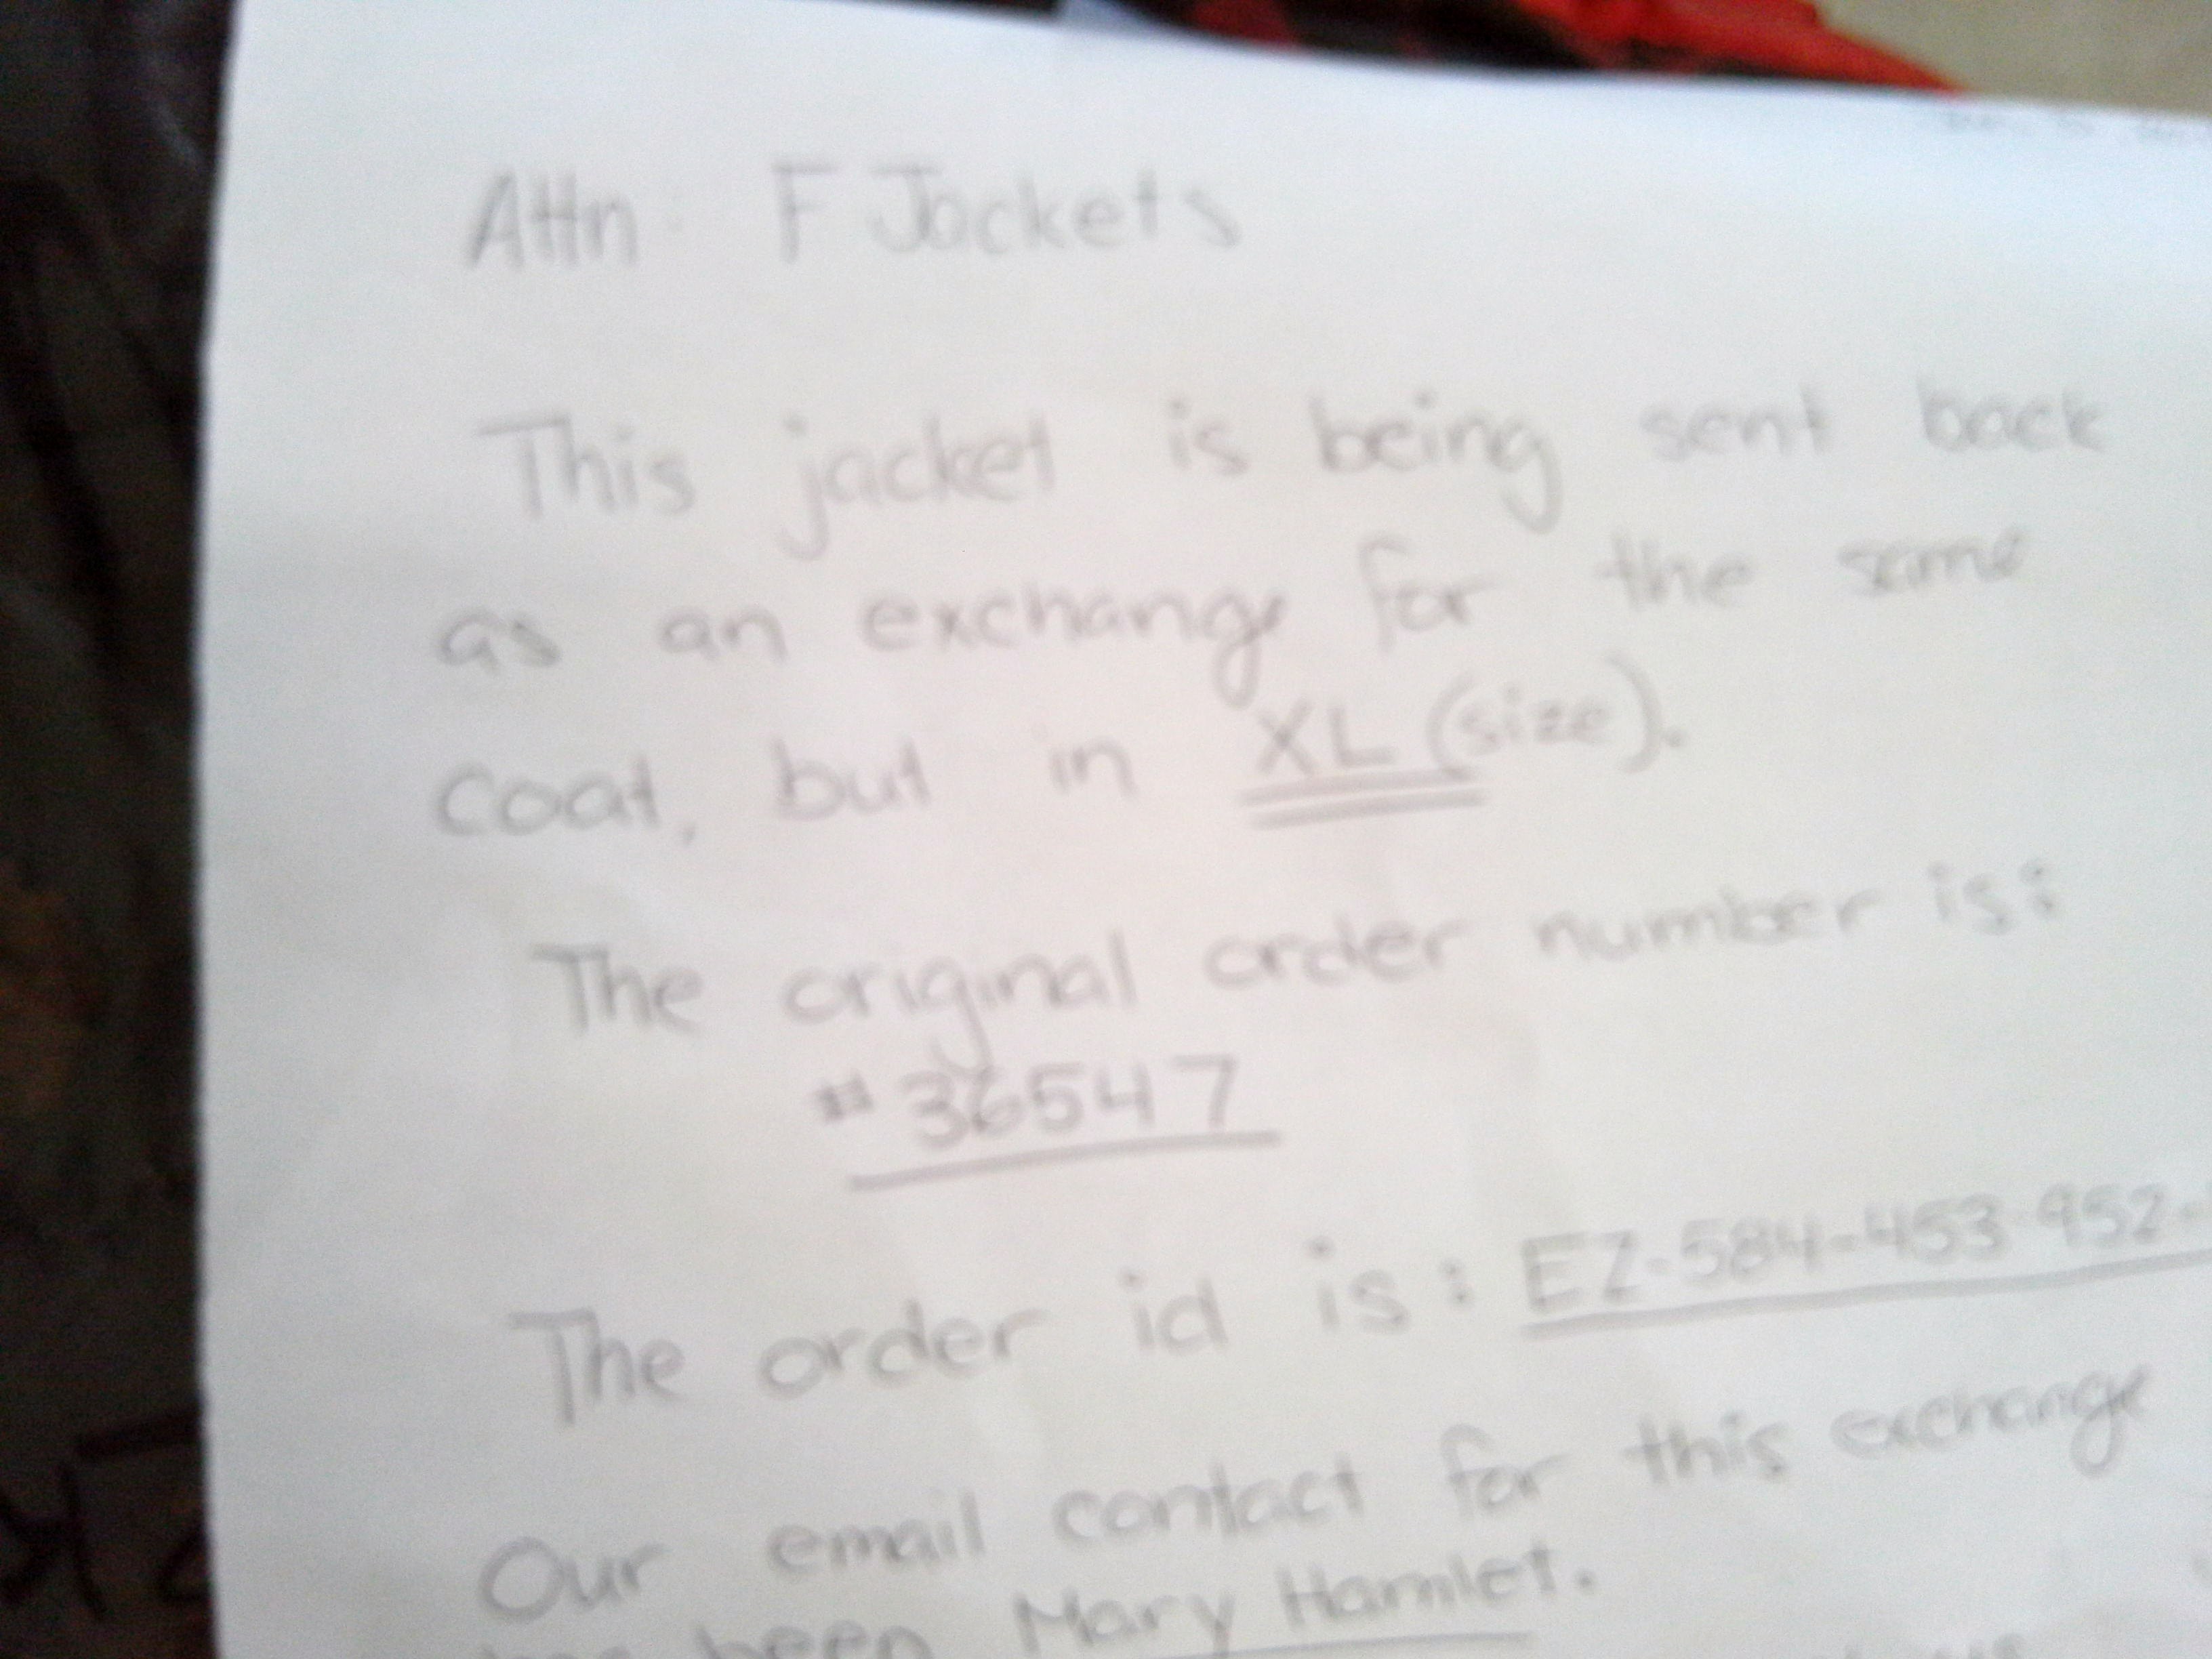 Attn: F Jackets
This jacket is being sent back
as an exchange for the same
coat, but in XL (size).
The original order number is:
#36547
The order id is: EZ-584-453-952-
Our email contact for this exchange
has been Mary Hamlet.